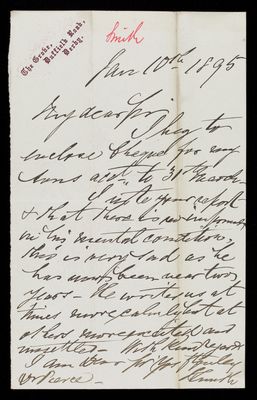 The Grove,
Duffield Road,
Derby.
Smith
Jan 10th 1895
My dear Sir
I beg to
enclose Cheque for my
sons acct to 31st March
I note your report
& that there is no improvement
in his mental condition,
this is very sad as he
has now been near two
years - He writes us at
times more calmly but at
others more excited and
unsettled - With kind regards
I am dear Sir yrs
Dr Pierce -